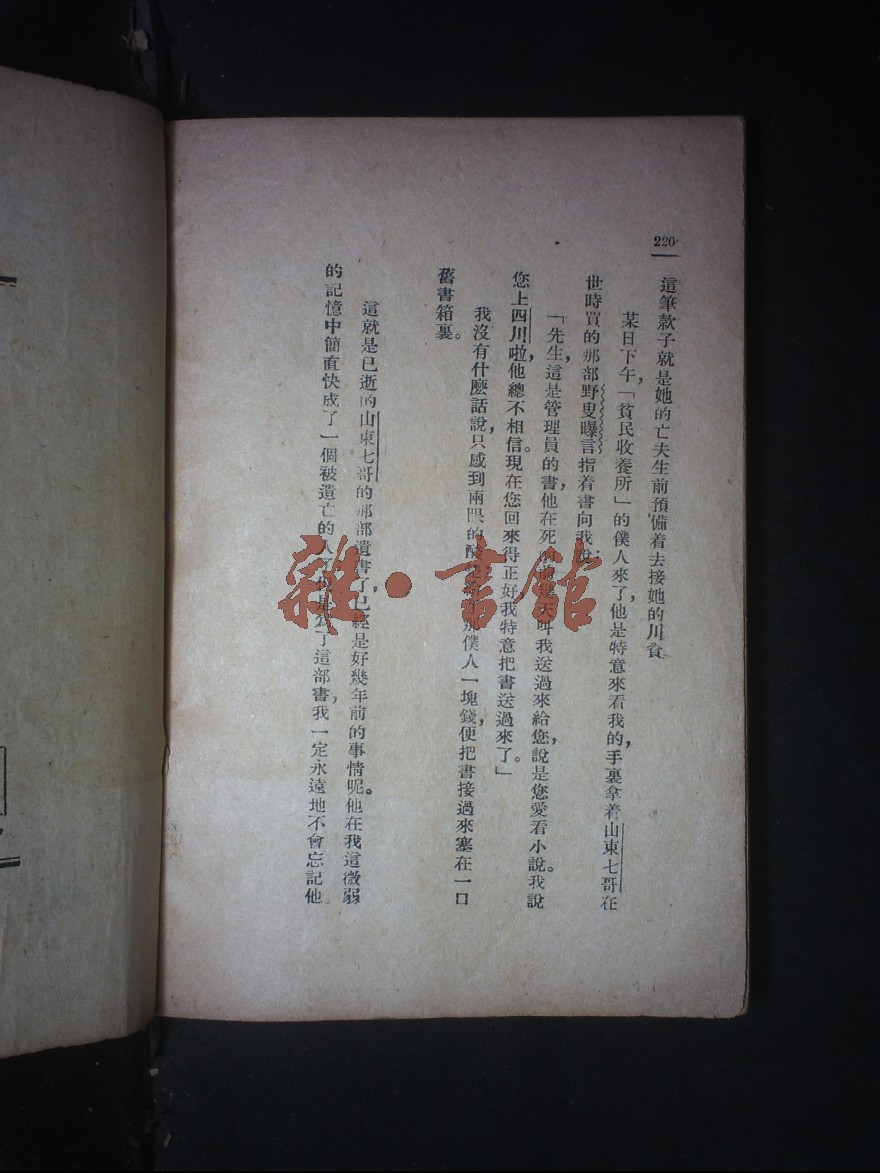 220
這筆款子就是她的亡夫生前預備着去接她的川資。
某日下午，「貧民收養所」的僕人來了，他是特意來看我的，手裏拿着山東七哥在
世時買的那部野叟曝言指着書向我說：
「先生，這是管理員的書，他在死的前幾天叫我送過來給您，說是您愛看小說。我說
您上四川啦，他總不相信。現在您回來得正好，我特意把書送過來了。」
我沒有什麽話說，只感到兩眼的酸。那僕人一塊錢，便把書接過來塞在一口
舊書箱裏。
這就是已逝的山東七哥的那部遺書了，已經是好幾年前的事情呢。他在我這微弱
的記憶中簡直快成了一個被遺亡的人了，是爲了這部書，我一定永遠地不會忘記他。
雜·書館